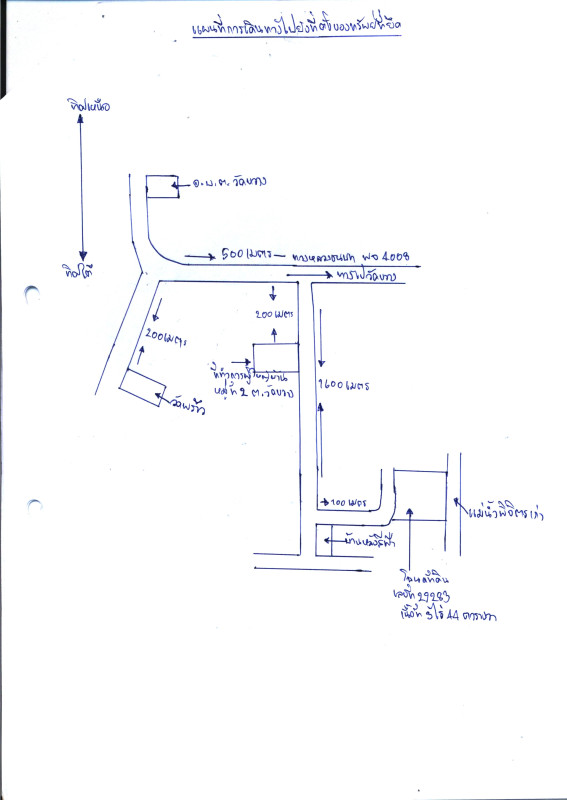 แผนที่การเดินทางไปยังที่ตั้งของทรัพย์ที่ยึด
ทิศเหนือ
อ.บ.ต. วัดขวาง
500 เมตร
ทางหลวงชนบท พจ 4008
ทิศใต้
ทางไปวัดขวาง
200 เมตร
200 เมตร
ที่ทำการผู้ใหญ่บ้าน
หมู่ที่ 2 ต. วัดขวาง
1600 เมตร
100 เมตร
แม่น้ำพิจิตรเก่า
โฉนดที่ดิน
เลขที่ 29283
เนื้อที่ 3 ไร่ 44 ตารางวา